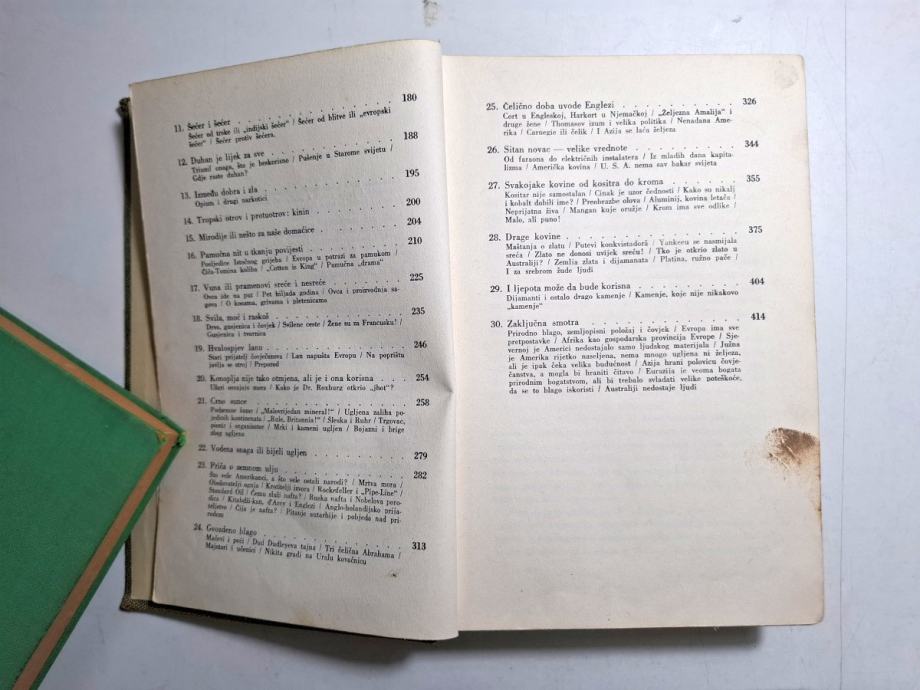 11. Šećer i šećer . . . . . . . . . . 180
Šećer od trske ili „indijski šećer" / Šećer od blitve ili „evropski
šećer" / Šećer protiv šećera.
12. Duhan je lijek za sve . . . . . . . . . . 188
Trijumf onoga, što je beskorisno / Pušenje u Starome svijetu /
Gdje raste duhan?
13. Između dobra i zla . . . . . . . . . . 195
Opium i drugi narkotici
14. Tropski otrov i protuotrov: kinin . . . . . . . . . . 200
15. Mirodije ili nešto za naše domaćice . . . . . . . . . . 204
16. Pamučna nit u tkanju povijesti . . . . . . . . . . 210
Posljedice istočnog grijeha / Evropa u potrazi za pamukom /
Čiča-Tomina koliba / „Cotton is King" / Pamučna „drama"
17. Vuna ili pramenovi sreće i nesreće . . . . . . . . . . 225
Ovca ide na put / Pet hiljada godina / Ovca i proizvodnja sa-
gova / O kosama, grivama i pletenicama
18. Svila, moć i raskoš . . . . . . . . . . 235
Drvo, gusjenica i čovjek / Svilene ceste / Žene su za Francusku!
Gusjenica i tvornica
19. Hvalospjev lanu . . . . . . . . . . 246
Stari prijatelj čovječanstva / Lan napušta Evropu / Na poprištu
javlja se stroj / Prepored
20. Konoplja nije tako otmjena, ali je i ona korisna . 254
Užeri osvajaju mora / Kako je Dr. Roxburg otkrio „jhot"?
21. Crno sunce . . . . . . . . . . 258
Podzemne šume / „Malovrijedan mineral!" / Ugljena zaliha po-
jedinih kontinenata / „Rule, Britannia!" / Šleska i Ruhr / Trgovac,
pionir i organizator / Mrki i kameni ugljen / Bojazni i brige
zbog ugljena
22. Vodena snaga ili bijeli ugljen . . . . . . . . . . 279
23. Priča o zemnom ulju . . . . . . . . . . 282
Što vele Amerikanci, a što vele ostali narodi? / Mrtva mora /
Obožavatelji ognja / Krotitelji izvora / Rockefeller i „Pipe-Line" /
Standard Oil / Čemu služi nafta? / Ruska nafta i Nobelova poro-
dica / Kitabdži-kan, d'Arcy i Englezi / Anglo-holandijsko prija-
teljstvo / Čija je nafta? / Pitanje autarhije i pobjeda nad pri-
rodom
24. Gvozdeno blago . . . . . . . . . . 313
Mačevi i peći / Dud Dudleyeva tajna / Tri čelična Abrahama /
Majstori i učenici / Nikita gradi na Uralu kovačnicu
25. Čelično doba uvode Englezi . . . . . . . . . . 326
Cort u Engleskoj, Harkort u Njemačkoj / „Željezna Amalija" i
druge žene / Thomasov izum i velika politika / Nenadana Ame-
rika / Carnegie ili čelik / I Azija se laća željeza
26. Sitan novac — velike vrednote . . . . . . . . . . 344
Od faraona do električnih instalatera / Iz mladih dana kapita-
lizma / Američka kovina / U. S. A. nema sav bakar svijeta
27. Svakojake kovine od kositra do kroma . . . . . . . . . . 355
Kositar nije samostalan / Cinak je uzor čednosti / Kako su nikalj
i kobalt dobili ime? / Prenbrazbe olova / Aluminij, kovina letača /
Neprijatna živa / Mangan kuje oružje / Krom ima sve odlike /
Malo, ali puno!
28. Drage kovine . . . . . . . . . . 375
Maštanja o zlatu / Putevi konkvistadorâ / Yankeeu se nasmijala
sreća / Zlato ne donosi uvijek sreću! / Tko je otkrio zlato u
Australiji? / Zemlja zlata i dijamanata / Platina, ružno pače /
I za srebrom žude ljudi
29. I ljepota može da bude korisna . . . . . . . . . . 404
Dijamanti i ostalo drago kamenje / Kamenje, koje nije nikakovo
„kamenje"
30. Zaključna smotra . . . . . . . . . . 414
Prirodno blago, zemljopisni položaj i čovjek / Evropa ima sve
pretpostavke / Afrika kao gospodarska provincija Evrope / Sje-
vernoj je Americi nedostajalo samo ljudskog materijala / Južna
je Amerika rijetko naseljena, nema mnogo ugljena ni željeza,
ali je ipak čeka velika budućnost / Azija hrani polovicu čovje-
čanstva, a mogla bi hraniti čitavo / Eurazija je veoma bogata
prirodnim bogatstvom, ali bi trebalo svladati velike poteškoće,
da se to blago iskoristi / Australiji nedostaje ljudi